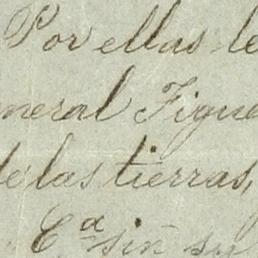 Por ellas le
neral Figue
de las tierras,
Ca sin su